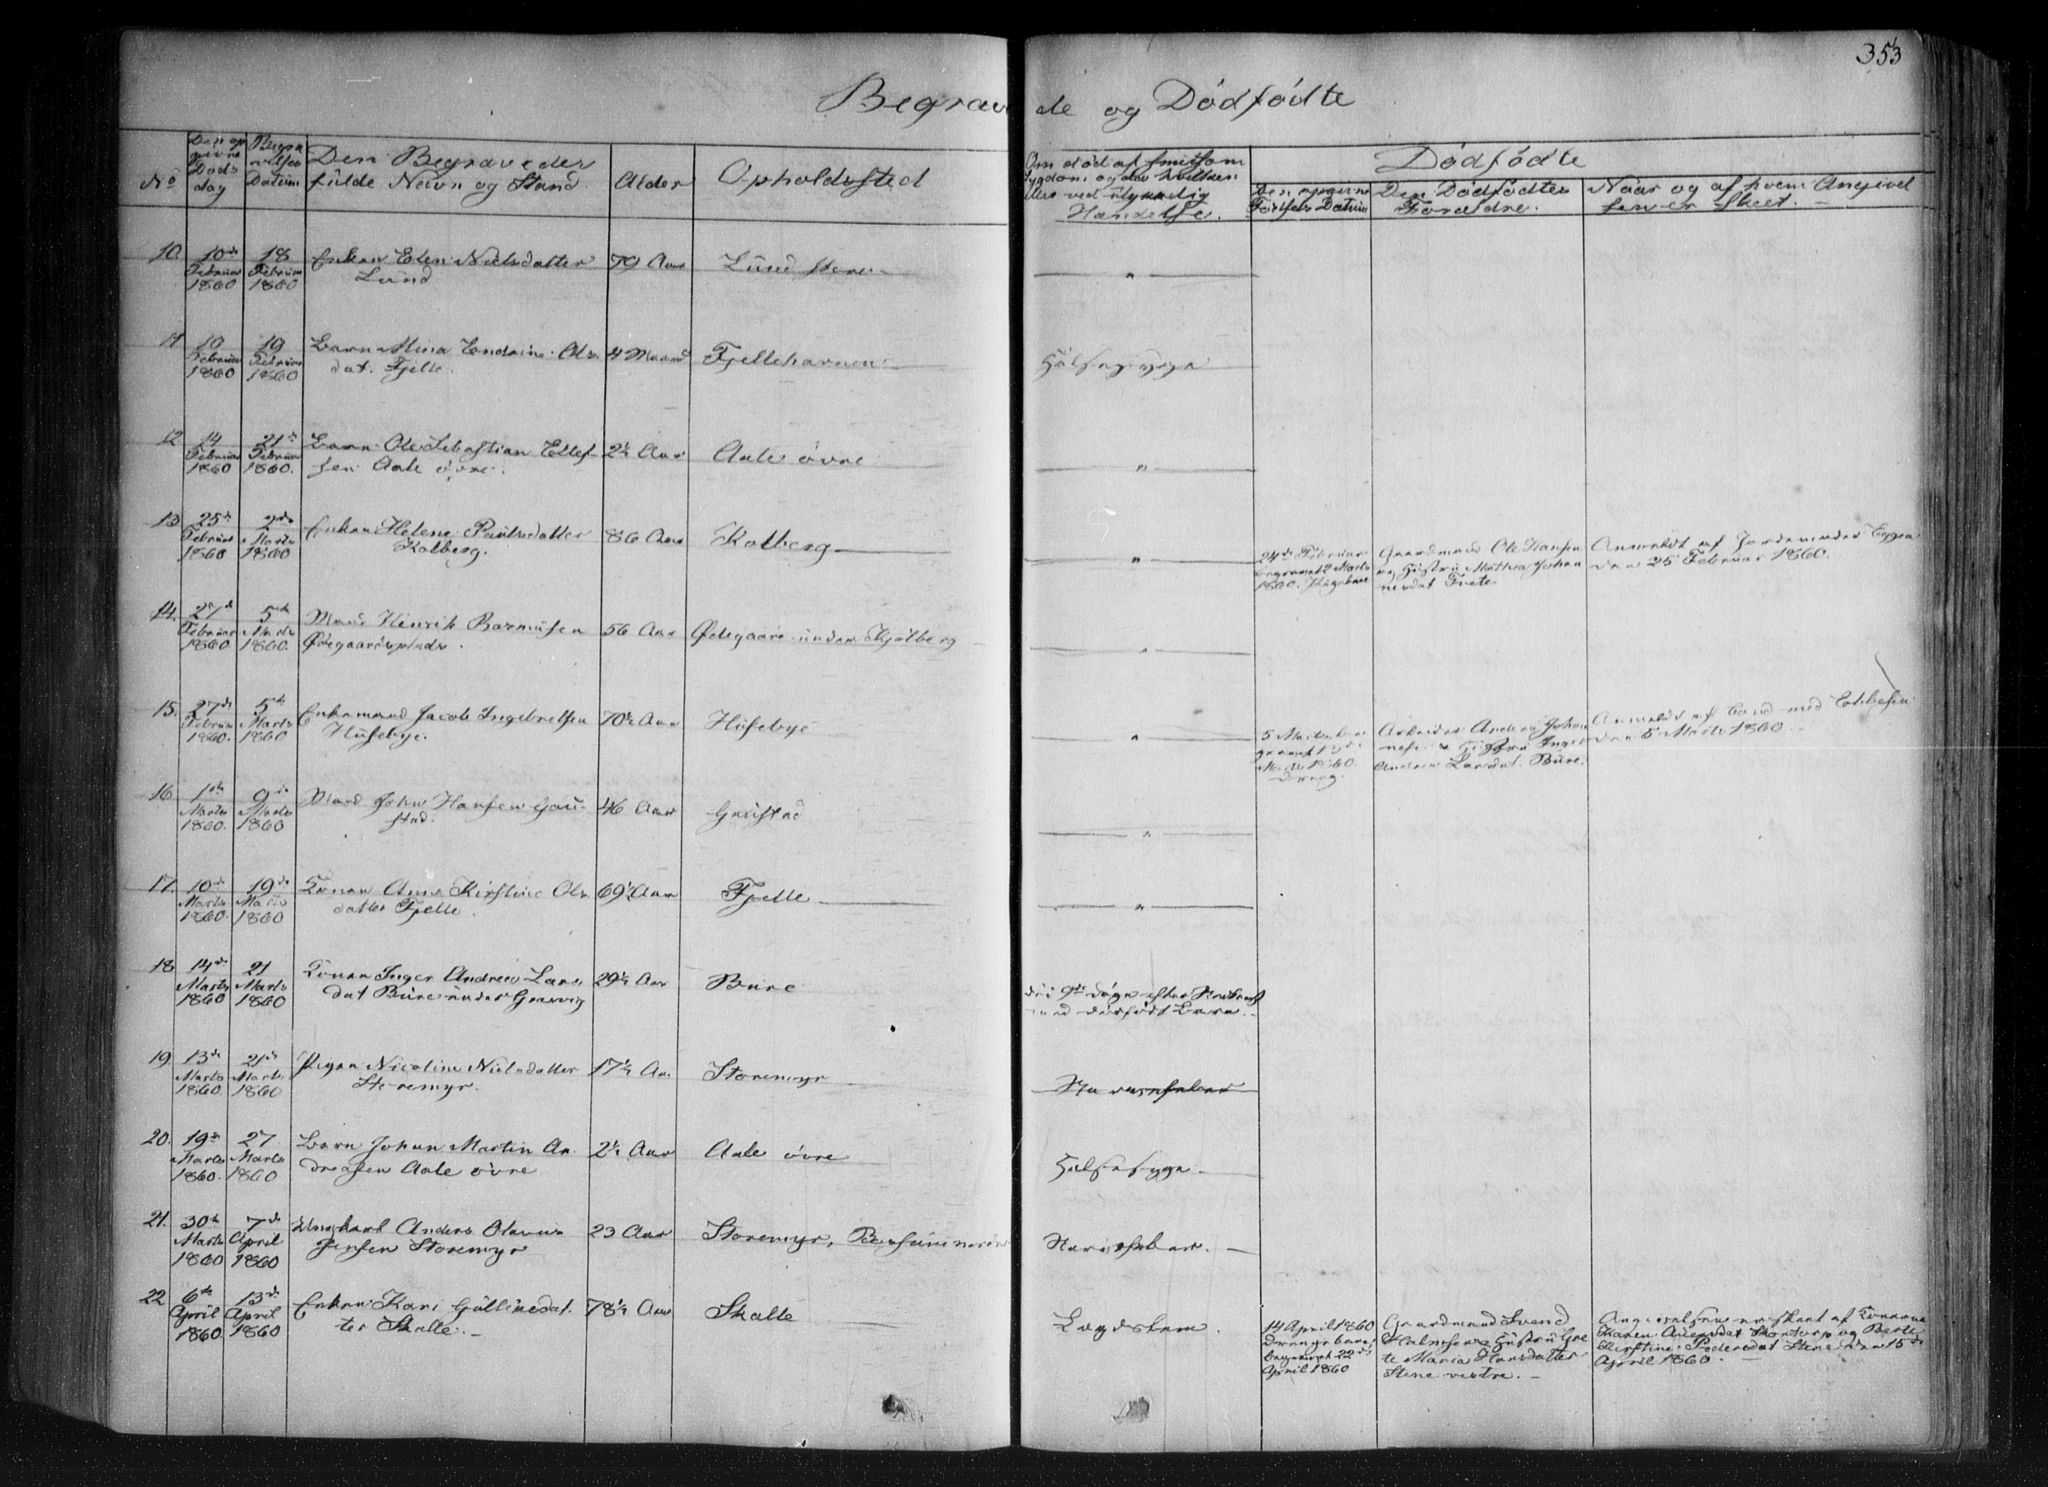 353
Begravede og Dödfödte
No
Den op
givne
Döds
dag
Begra
velses
Datum
Den Begravedes
fulde Navn og Stand.
Alder
Opholdssted
Om död af smitsom
Sygdom og da hvilken
eller ved ulykkelig
Hændelse.
Dödfödte
Den opgivne
Födsels Datum
Den Dödfödtes
Forældre.
Naar og af hvem Angivel
sen er skeet.
10. 10de Februar 1860 18 Februar 1860 Enken Elen Nielsdatter
Lund
79 Aar Lund store
11 10 Februar 1860 19 Februar 1860 Barn Mina Ols
dat. Fjelle.
4 Fjellehavnen
Halsesyge
12 14 Februar 1860 21de Februar 1860. Barn Ole Sebastian Ellef
sen Aale övre.
2½ Aar Aale övre
13 25de Februar 1860 2den Marts 1860 Enken Helene Paulsdatter
Kolberg.
86 Aar Kolberg
24de Februar
begravet 2 Marts
1860.
Gaardmand Ole Hansen
og Hustru Mathea Johan
nesdat
Anmeldt af Jordemoder
den 25 Februar 1860.
14. 27de Februar 1860 5te Marts 1860. Mand Henrik Rasmusen
Ødegaardsplads.
56 Aar Ødegaard under Kjölberg
15. 27de Februar 1860. 5te Marts 1860 Enkemand Jacob Ingebretsen
Husebye.
70½ Aar Husebye
5 Marts be
gravet
Marts 1860.
Dreng.
Arbeider Anders Johan
nesen & Hustru Inger
Andrea Larsdat. Bure.
Anmeldt af
den 5 Marts 1860
16. 1ste Marts 1860. 9de Marts 1860 Mand John Hansen Gau
stad.
46 Aar Gaustad
17. 10de Marts 1860. 19de Marts 1860 Konen Anne Kirstine Ols
datter Fjelle.
69½ Aar Fjelle
18 14de Marts 1860 21 Marts 1860 Konen Inger Andrea Lars
dat Bure under Gressvig
29½ Aar Bure
död 9de Dögn efter
med dödfödt Barn.
19 13de Marts 1860. 21de Marts 1860 Pigen Nicoline Nielsdatter
Storemyr.
17½ Aar Storemyr
Nervefeber
20. 19de Marts 1860. 27 Marts 1860 Barn Johan Martin An
dreasen Aale övre
2½ Aar Aale övre
Halsesyge
21. 30te Marts 1860 7de April 1860 Ungkarl Anders Olaves
Jensen Storemyr
23 Aar Storemyr,
Nervefeber.
22 6te April 1860. 13de April 1860 Enken Kari Gullinedat
ter Skalle.
78½ Aar Skalle
14 April 1860
Drengebarn
begravet 22de
April 1860
Gaardmand Svend
Halvorsen & Hustru Gre
te Maria Hansdatter
Stene vestre.
Angivelsen er skeet af Konerne
Karen og Berte
Kirstine Pedersdat Stene den 15de
April 1860.